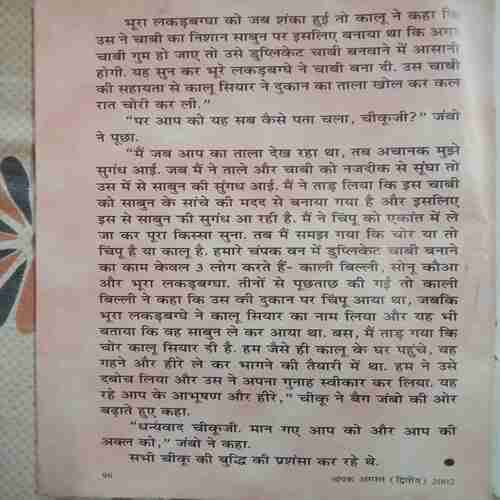 भूरा लकड़बग्घा को जब शंका हुई तो कालू ने कहा कि
उस ने चाबी का निशान साबुन पर इसलिए बनाया था कि अगर
चाबी गुम हो जाए तो उसे डुप्लिकेट चाबी बनवाने में आसानी
होगी. यह सुन कर भूरे लकड़बग्घे ने चाबी बना दी. उस चाबी
की सहायता से कालू सियार ने दुकान का ताला खोल कर कल
रात चोरी कर ली.”
“पर आप को यह सब कैसे पता चला, चीकूजी?” जंबो
ने पूछा.
“मैं जब आप का ताला देख रहा था, तब अचानक मुझे
सुगंध आई. जब मैं ने ताले और चाबी को नजदीक से सूंघा तो
उस में से साबुन की सुंगध आई. मैं ने ताड़ लिया कि इस चाबी
को साबुन के सांचे की मदद से बनाया गया है और इसलिए
इस से साबुन की सुगंध आ रही है. मैं ने चिंपू को एकांत में ले
जा कर पूरा किस्सा सुना. तब मैं समझ गया कि चोर या तो
चिंपू है या कालू है. हमारे चंपक वन में डुप्लिकेट चाबी बनाने
का काम केवल 3 लोग करते हैं- काली बिल्ली, सोनू कौआ
और भूरा लकड़बग्घा. तीनों से पूछताछ की गई तो काली
बिल्ली ने कहा कि उस की दुकान पर चिंपू आया था, जबकि
भूरा लकड़बग्घे ने कालू सियार का नाम लिया और यह भी
बताया कि वह साबुन ले कर आया था. बस, मैं ताड़ गया कि
चोर कालू सियार ही है. हम जैसे ही कालू के घर पहुंचे, वह
गहने और हीरे ले कर भागने की तैयारी में था. हम ने उसे
दबोच लिया और उस ने अपना गुनाह स्वीकार कर लिया. यह
रहे आप के आभूषण और हीरे,” चीकू ने बैग जंबो की ओर
बढ़ाते हुए कहा.
“धन्यवाद चीकूजी. मान गए आप को और आप की
अक्ल को,” जंबो ने कहा.
सभी चीकू की बुद्धि की प्रशंसा कर रहे थे.
चंपक अगस्त (द्वितीय) 2002